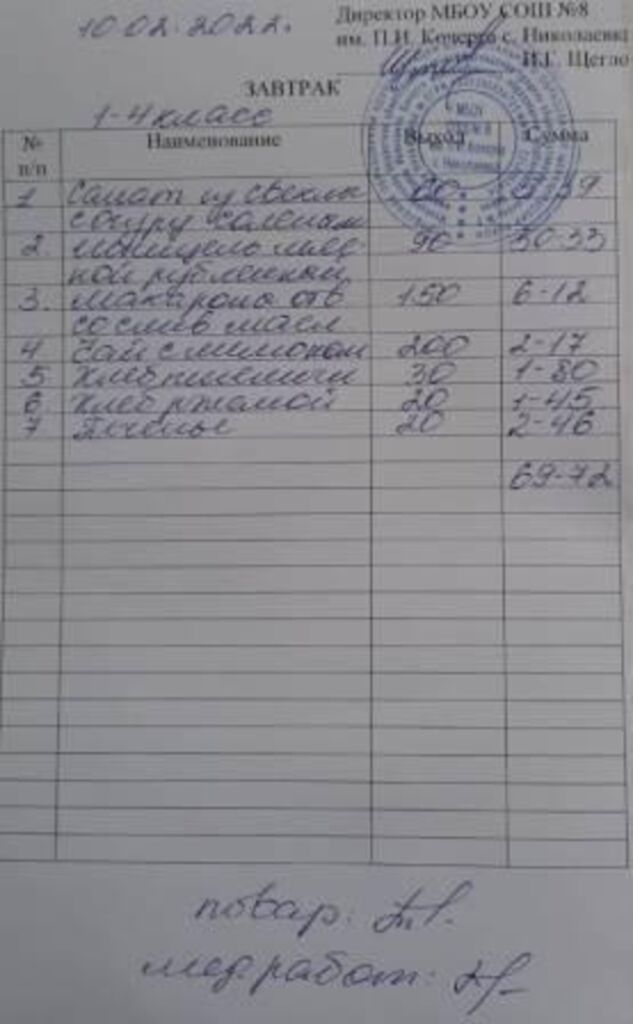 10.02.2022г.
Директор МБОУ СОШ №8
им. П.И. Кочерги с. Николаевка
И.Г. Щегло
ЗАВТРАК
1-4 класс
№ п/п Наименование Выход Сумма
1 Салат из свеклы 60
с огурц соленым
2. 90 50-33
ной рубленный
3. Макароны отв 150 6-12
со слив масл
4 Чай с лимоном 200 2-17
5 Хлеб пшеничн 30 1-80
6 Хлеб ржаной 20 1-45
7 Печенье 20 2-46
69-72
повар:
мед работ: